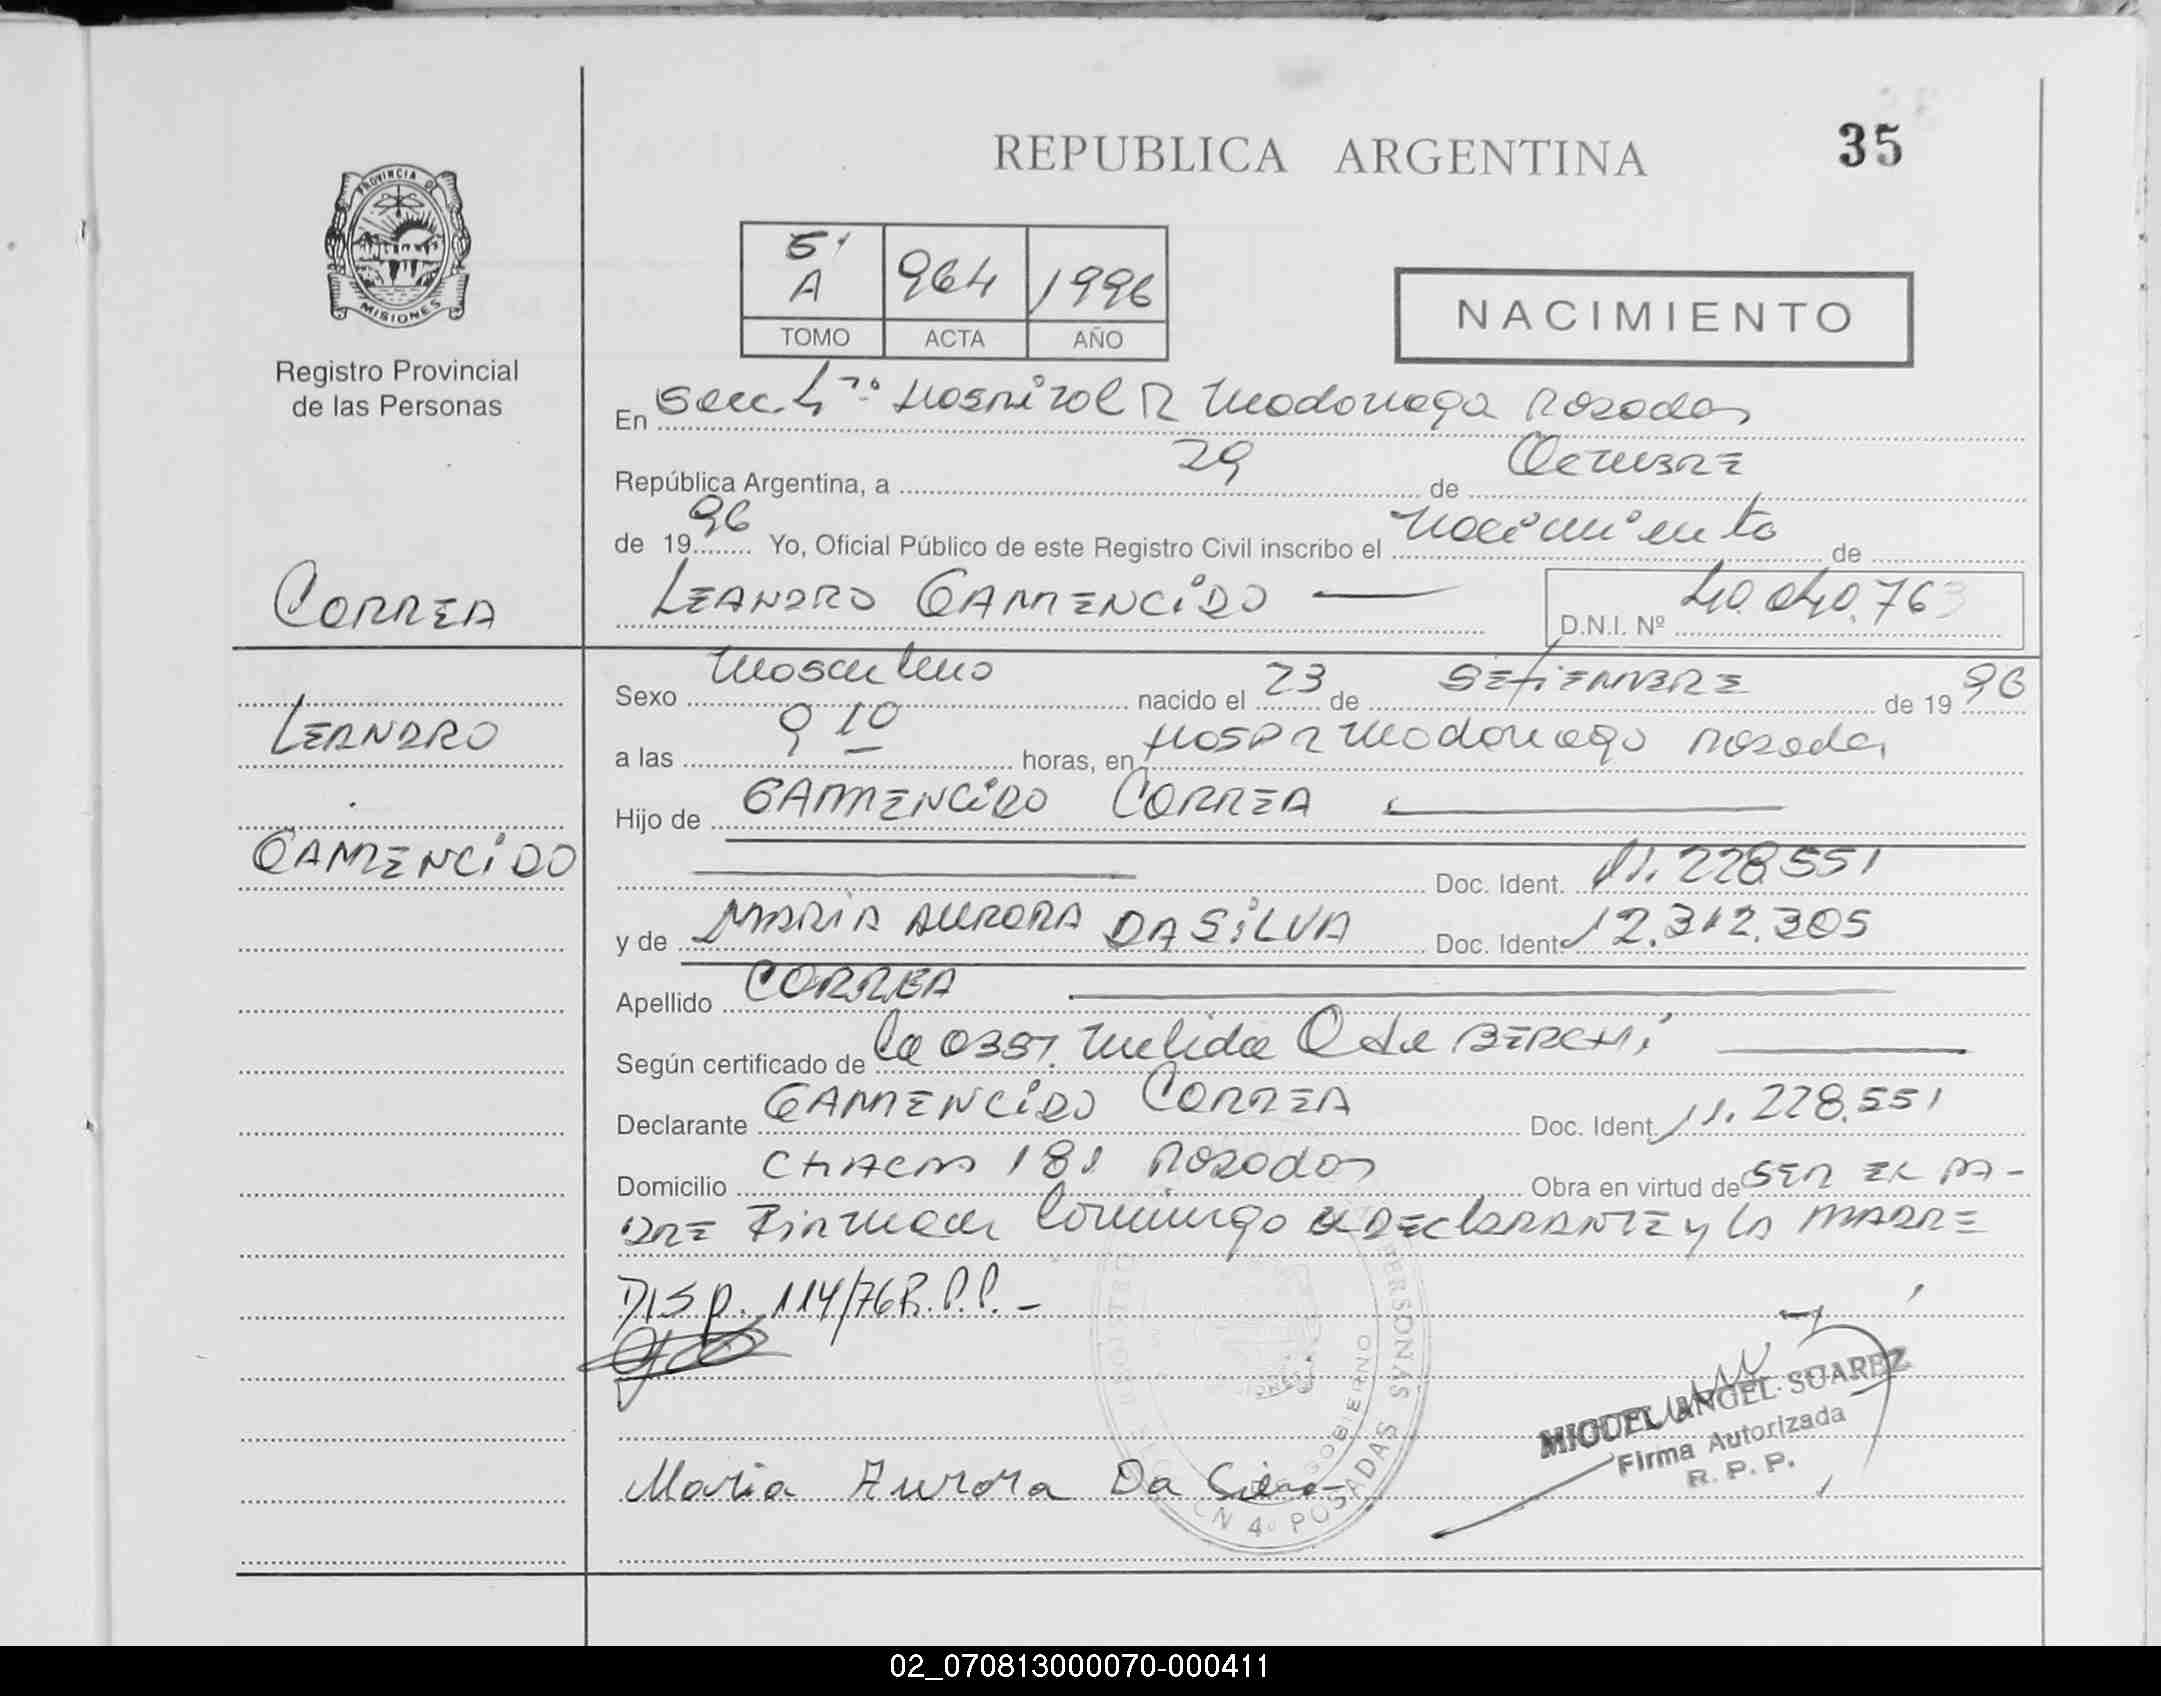 REPUBLICA ARGENTINA
35
PROVINCIA DE
MISIONES
Registro Provincial
de las Personas
5º
A
964
1996
TOMO
ACTA
AÑO
NACIMIENTO
En Secc. 4ª Hospital R Madariaga Posadas
República Argentina, a 29 de Octubre
de 1996 Yo, Oficial Público de este Registro Civil inscribo el Nacimiento de
LEANDRO GAMENCIDO
D.N.I. Nº 40.040.763
CORREA
LEANDRO
GAMENCIDO
Sexo Masculino nacido el 23 de SETIEMBRE de 1996
a las 9 10 horas, en Hosp R Madariaga Posadas
Hijo de GAMENCIDO CORREA
Doc. Ident. 11.228.551
y de MARIA AURORA DA SILVA Doc. Ident. 12.312.305
Apellido CORREA
Según certificado de la Obst. Nelida O de BERCHI
Declarante GAMENCIDO CORREA Doc. Ident. 11.228.551
Domicilio CHACRA 181 Posadas Obra en virtud de SER EL PA-
DRE Firman Conmigo el DECLARANTE y LA MADRE
DISP. 114/76 R.P.P.-
Maria Aurora Da Silva
MIGUEL ANGEL SUAREZ
Firma Autorizada
R. P. P.
PERSONAS
GOBIERNO
4º POSADAS
02_070813000070-000411